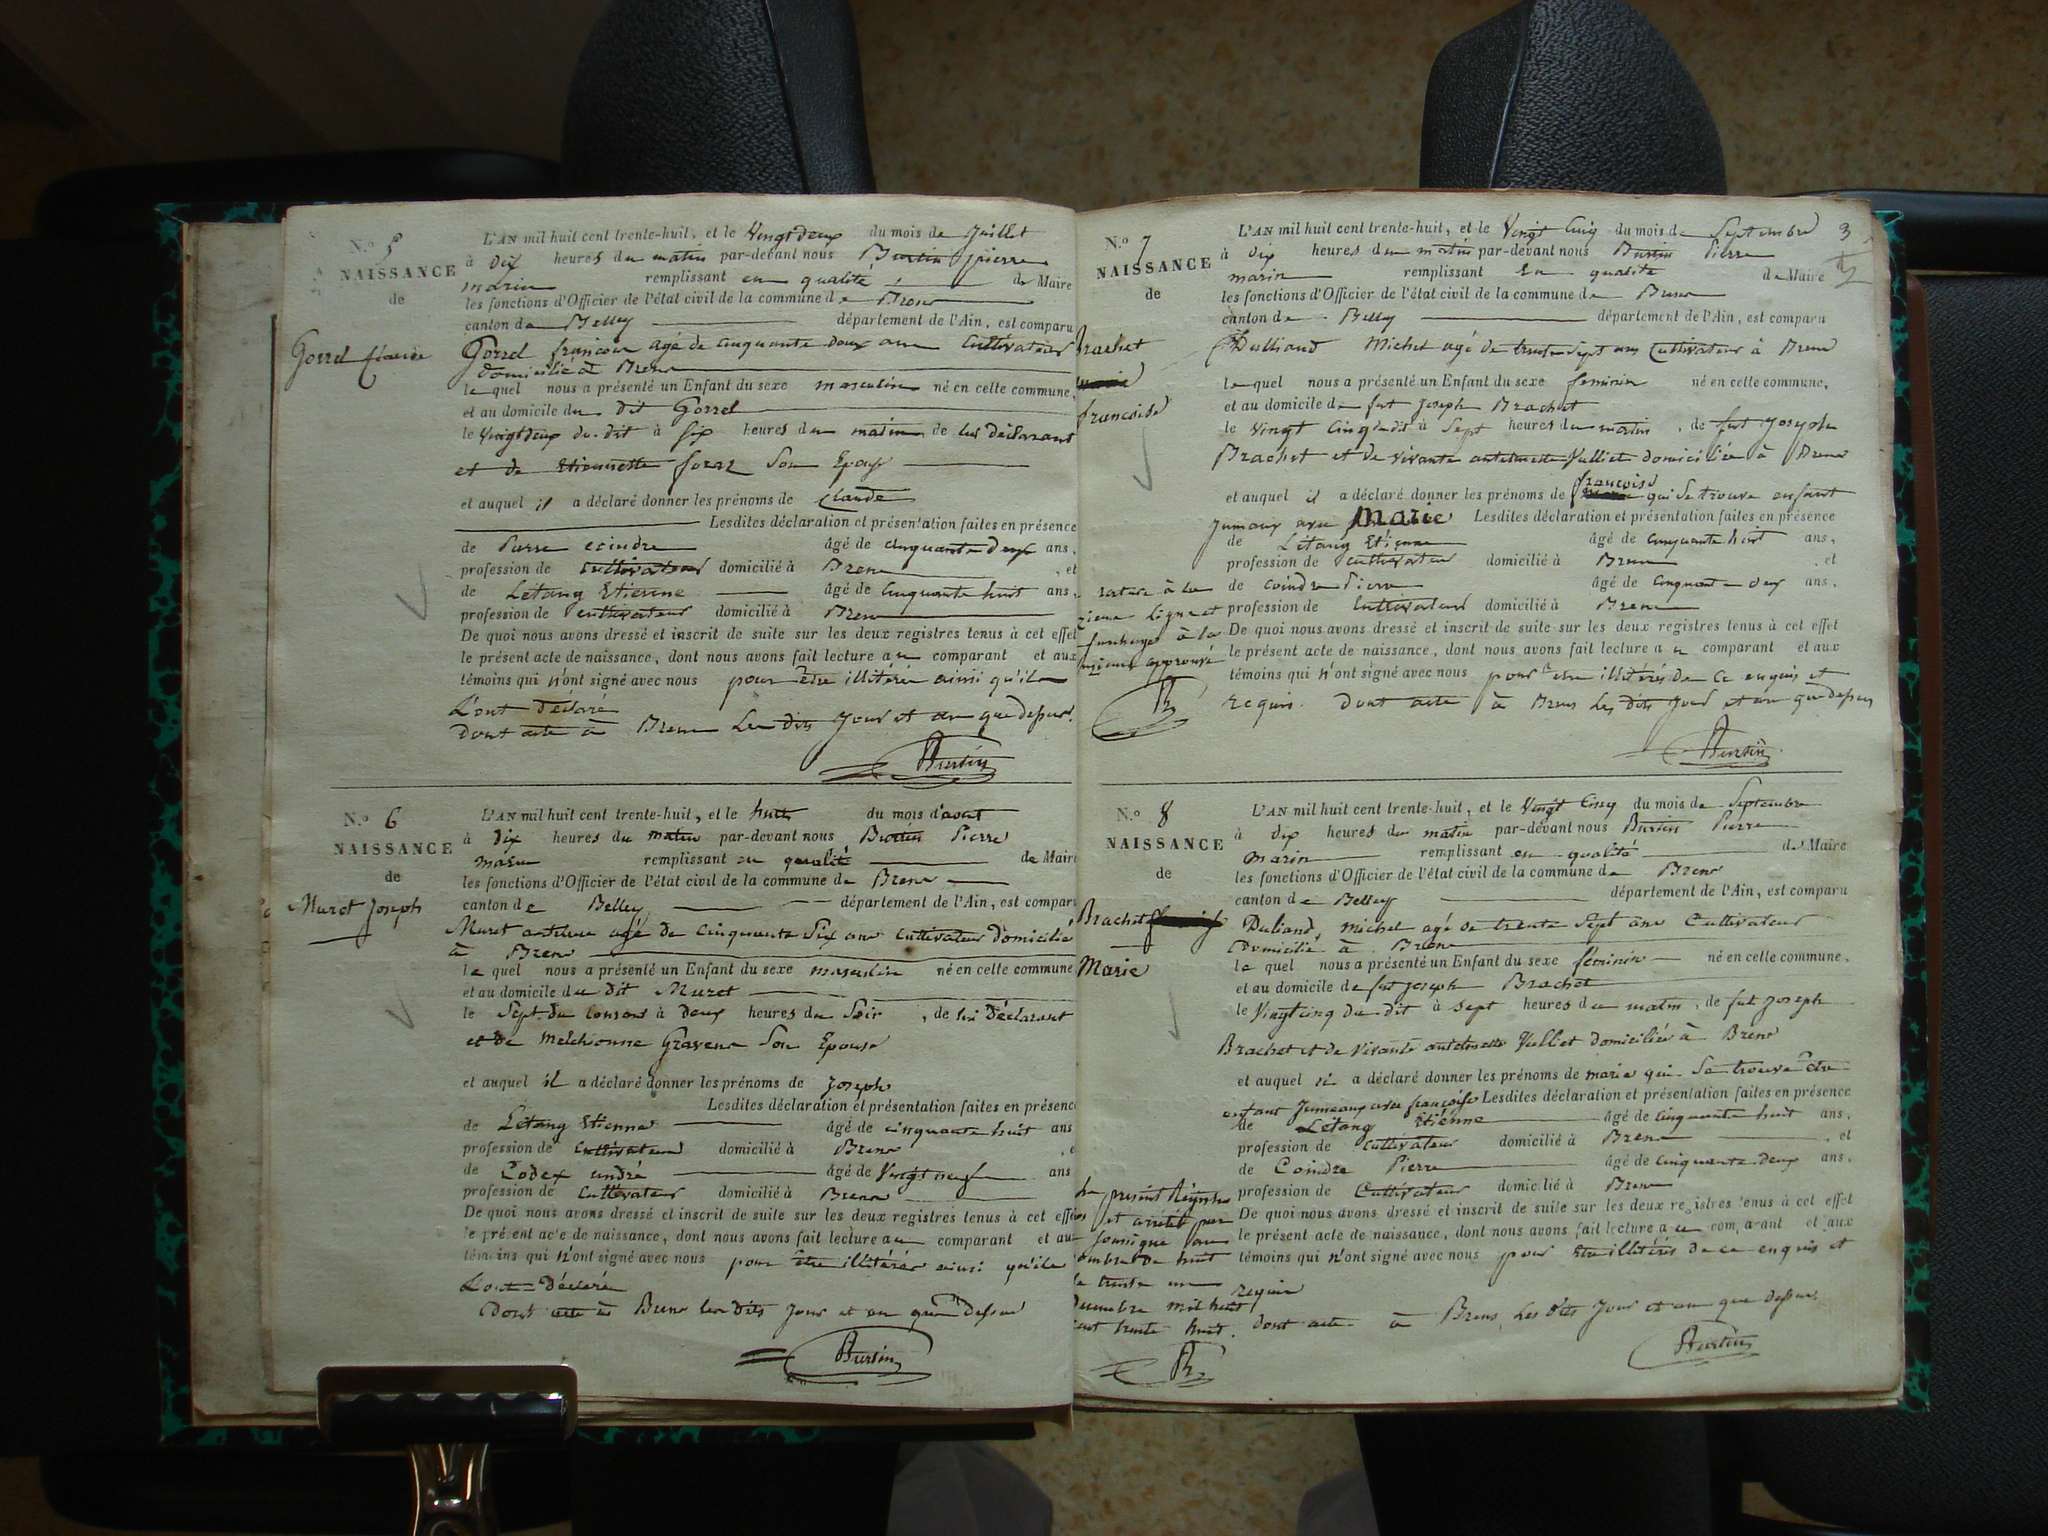 N.º 5
NAISSANCE
de
Gorrel Claude
L'AN mil huit cent trente-huit, et le Vingt deux du mois de Juillet
à dix heures du matin par-devant nous Burtin pierre
marin remplissant en qualité de Maire
les fonctions d'Officier de l'état civil de la commune de Brens
canton de Belley département de l'Ain, est comparu
Gorrel françois agé de cinquante deux ans Cultivateur
domicilié à Brens
le quel nous a présenté un Enfant du sexe masculin né en cette commune,
et au domicile du dit Gorrel
le Vingt deux du dit à Six heures du matin de lui déclarant
et de Etiennette foraz Son Epouse
et auquel il a déclaré donner les prénoms de Claude
Lesdites déclaration et présentation faites en présence
de Pierre coindre âgé de cinquante deux ans,
profession de cultivateur domicilié à Brens, et
de Létang Etienne âgé de Cinquante huit ans,
profession de cultivateur domicilié à Brens
De quoi nous avons dressé et inscrit de suite sur les deux registres tenus à cet effet
le présent acte de naissance, dont nous avons fait lecture au comparant et aux
témoins qui n'ont signé avec nous pour être illitérés ainsi qu'ils
L'ont déclaré
Dont acte à Brens Les dits Jour et an que dessus.
Burtin
N.º 6
NAISSANCE
de
Muret Joseph
L'AN mil huit cent trente-huit, et le huit du mois d'aout
à dix heures du matin par-devant nous Burtin Pierre
marin remplissant en qualité de Maire
les fonctions d'Officier de l'état civil de la commune de Brens
canton de Belley département de l'Ain, est compar
Muret antoine agé de cinquante Six ans cultivateur domicilié
à Brens
le quel nous a présenté un Enfant du sexe masculin né en cette commune
et au domicile du dit Muret
le Sept du courant à deux heures du Soir, de lui Déclarant
et de Melchionne Gravend Son Epouse
et auquel il a déclaré donner les prénoms de Joseph
Lesdites déclaration et présentation faites en présence
de Létang Etienne âgé de cinquante huit ans
profession de cultivateur domicilié à Brens
de Codex andré âgé de Vingt neuf ans
profession de Cultivateur domicilié à Brens
De quoi nous avons dressé et inscrit de suite sur les deux registres tenus à cet effet
le présent acte de naissance, dont nous avons fait lecture au comparant et aux
témoins qui n'ont signé avec nous pour être illitérés ainsi qu'ils
L'ont Déclaré
Dont acte à Brens les dits Jour et an que Dessus
Burtin
3
N.º 7
NAISSANCE
de
Brachet
françoise
L'AN mil huit cent trente-huit, et le Vingt Cinq du mois de Septembre
à dix heures du matin par-devant nous Burtin Pierre
marin remplissant En qualité de Maire
les fonctions d'Officier de l'état civil de la commune de Brens
canton de Belley département de l'Ain, est comparu
Dulliand Michel agé de trente Sept ans Cultivateur à Brens
le quel nous a présenté un Enfant du sexe feminin né en cette commune,
et au domicile de fut Joseph Brachet
le Vingt Cinq dudit à Sept heures du matin, de fut Joseph
Brachet et de vivante antoinette Vulliet domiciliée à Brens
françoise
et auquel il a déclaré donner les prénoms de qui Se trouve enfant
Jumeaux avec Marie Lesdites déclaration et présentation faites en présence
de Létang Etienne âgé de cinquante huit ans,
profession de cultivateur domicilié à Brens, et
de coindre Pierre âgé de Cinquante deux ans,
profession de Cultivateur domicilié à Brens
De quoi nous avons dressé et inscrit de suite sur les deux registres tenus à cet effet
le présent acte de naissance, dont nous avons fait lecture au comparant et aux
témoins qui n'ont signé avec nous pour être illitérés de ce enquis et
requis. Dont acte à Brens Les dits Jour et an que dessus
rature à la
ligne et
surcharge à la
approuvé
Burtin
N.º 8
NAISSANCE
de
Brachet
Marie
L'AN mil huit cent trente-huit, et le Vingt Cinq du mois de Septembre
à dix heures du matin par-devant nous Burtin Pierre
marin remplissant en qualité de Maire
les fonctions d'Officier de l'état civil de la commune de Brens
canton de Belley département de l'Ain, est comparu
Duliand, michel agé de trente Sept ans Cultivateur
Domicilié à Brens
le quel nous a présenté un Enfant du sexe féminin né en cette commune,
et au domicile de fut joseph Brachet
le Vingt cinq du dit à Sept heures du matin, de fut Joseph
Brachet et de vivante antoinette Vulliet domiciliée à Brens
et auquel il a déclaré donner les prénoms de marie qui Se trouve être
enfant Jumeaux avec françoise Lesdites déclaration et présentation faites en présence
de Létang Etienne âgé de cinquante huit ans,
profession de cultivateur domicilié à Brens, et
de Coindre Pierre âgé de cinquante deux ans,
profession de Cultivateur domicilié à Brens
De quoi nous avons dressé et inscrit de suite sur les deux registres tenus à cet effet
le présent acte de naissance, dont nous avons fait lecture au comparant et aux
témoins qui n'ont signé avec nous pour être illitérés de ce enquis et
requis
dont acte à Brens, Les dits Jour et an que dessus
present Régistre
et arrêté par
Soussigné au
nombre de huit
le trente un
Décembre mil huit
cent trente huit.
Burtin